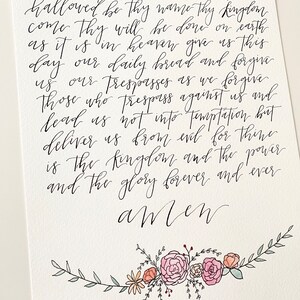 hallowed be thy name thy kingdom
come thy will be done on earth
as it is in heaven give us this
day our daily bread and forgive
us our trespasses as we forgive
those who trespass against us and
lead us not into temptation but
deliver us from evil for thine
is the kingdom and the power
and the glory forever and ever
amen